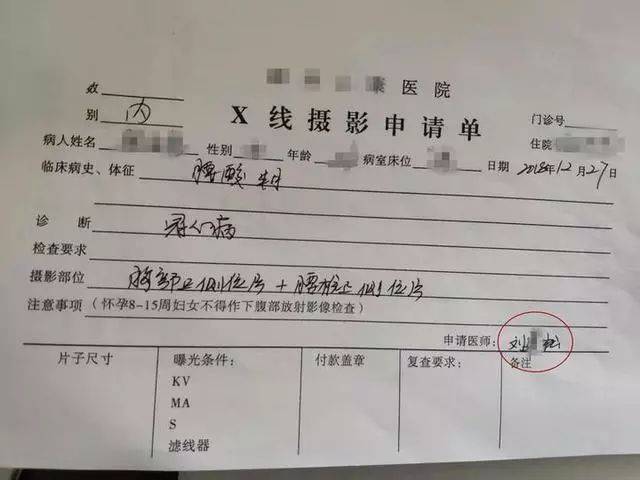 康医院
X线摄影申请单
效
别 内
门诊号
住院
病人姓名 性别 年龄 病室床位 日期 2018年12月27日
临床病史、体征 腰酸
诊 断 冠心病
检查要求
摄影部位 胸部正侧位片+腰椎正侧位片
注意事项 (怀孕8-15周妇女不得作下腹部放射影像检查)
申请医师: 刘
片子尺寸 曝光条件: 付款盖章 复查要求: 备注
KV
MA
S
滤线器